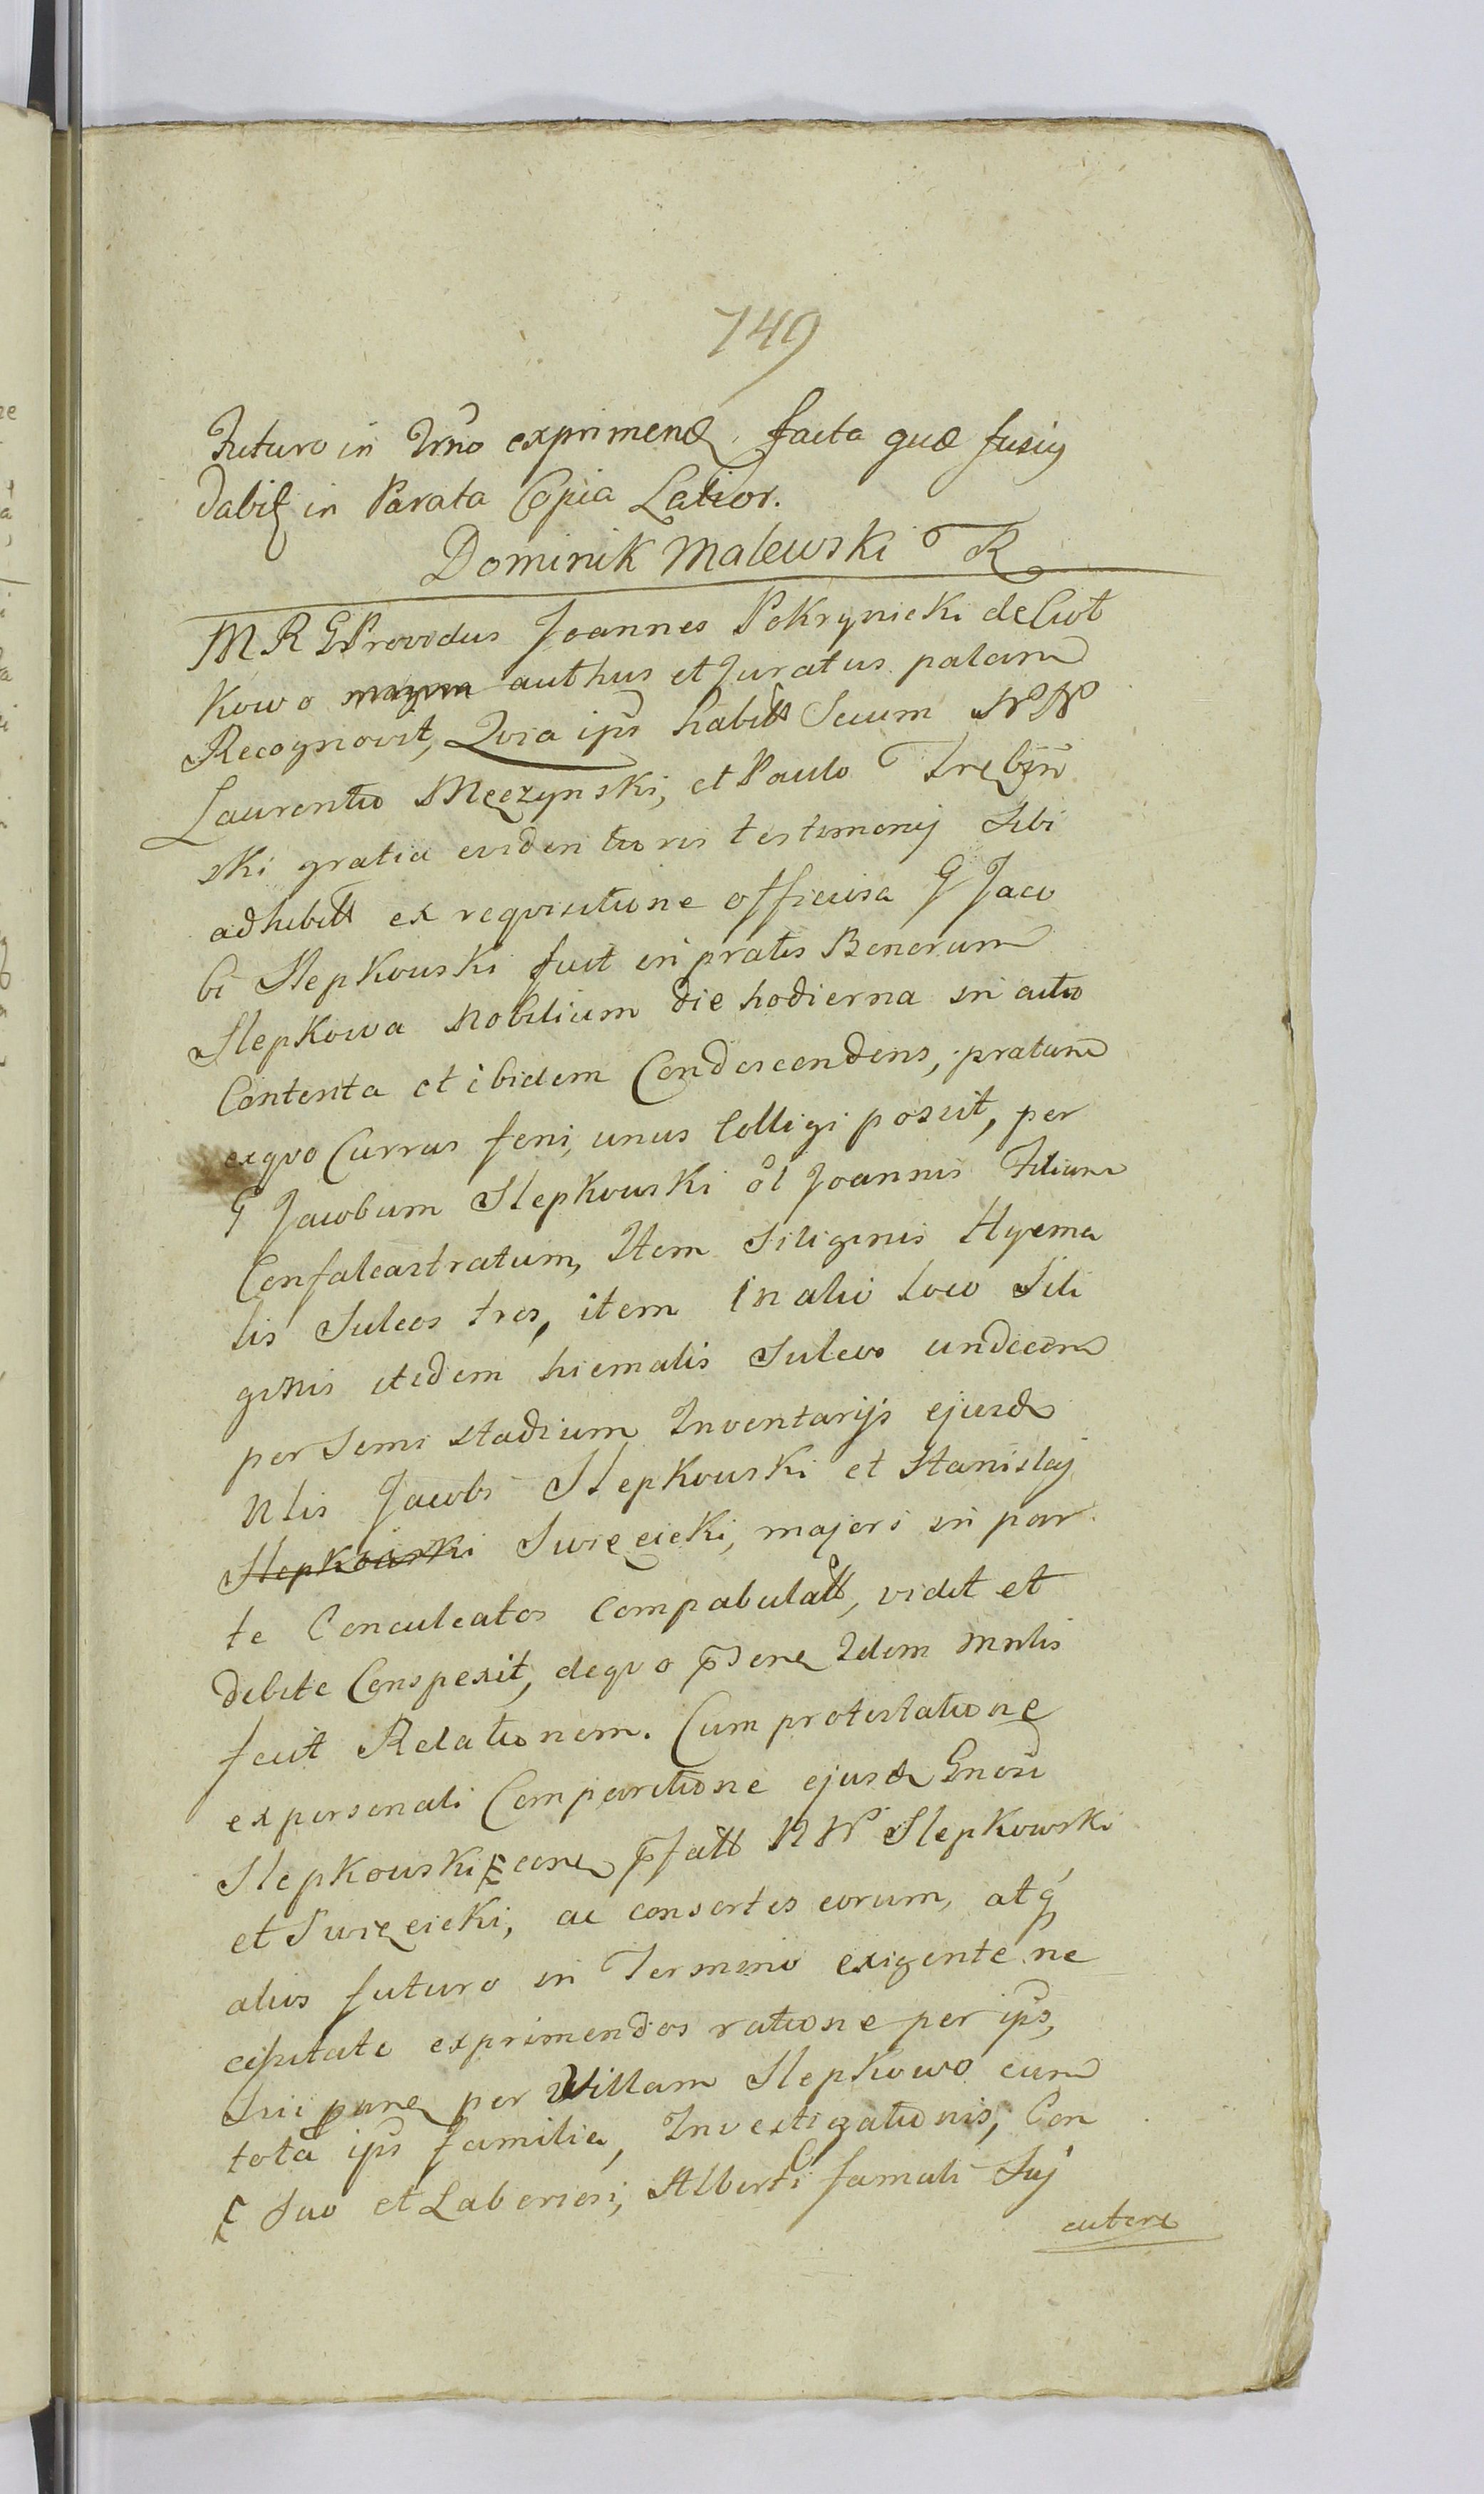 749
Futuro in Trno exprimend. facta quæ fusiꝰ
dabit in Parata Copia Latior.
Dominik Malewski R
M R G Provodus Joannes Pokrynicki de Ciot
kowo authus et Juratus palam
Recognovit, Quia ips habitt Secum NN
Laurentio Męczynski, et Paulo Trębin
ski gratia evidentioris testimonij sibi
adhibitt ex requisitione officiosa G Jaco
bi Slepkowski fuit in pratis Bonorum
Slepkowa Nobilium die hodierna in actu
Contenta et ibidem Condescendens, pratum
exquo Currus feni, unus Colligi possit, per
G Jacobum Slepkowski ol Joannis Filium
Confalcastratum, Item siliginis Hyema
lis Sulcos tres, item in alio loco Sili
ginis itidem hiemalis sulcos undecem
per semi stadium Inventarijs ejusd
Nlis Jacobi Slepkowski et Stanislaj
Slepkowski Swięcicki, majori in par
te Conculcatos Compabulatt, vidit et
debite Conspexit, dequo Idem Mnlis
fecit Relationem. Cum protestatione
ex personali Comparitione ejusd Gnosi
Slepkowski NN Slepkowski
et Swięcicki, ac consortes eorum, atq
alios futuro in Termino exigente ne
cessitate exprimendos ratione per ips,
Sui per Villam Slepkowo cum
tota ips familia, Investigationis, Con
suo et Laboriosi, Alberti famuli Suj